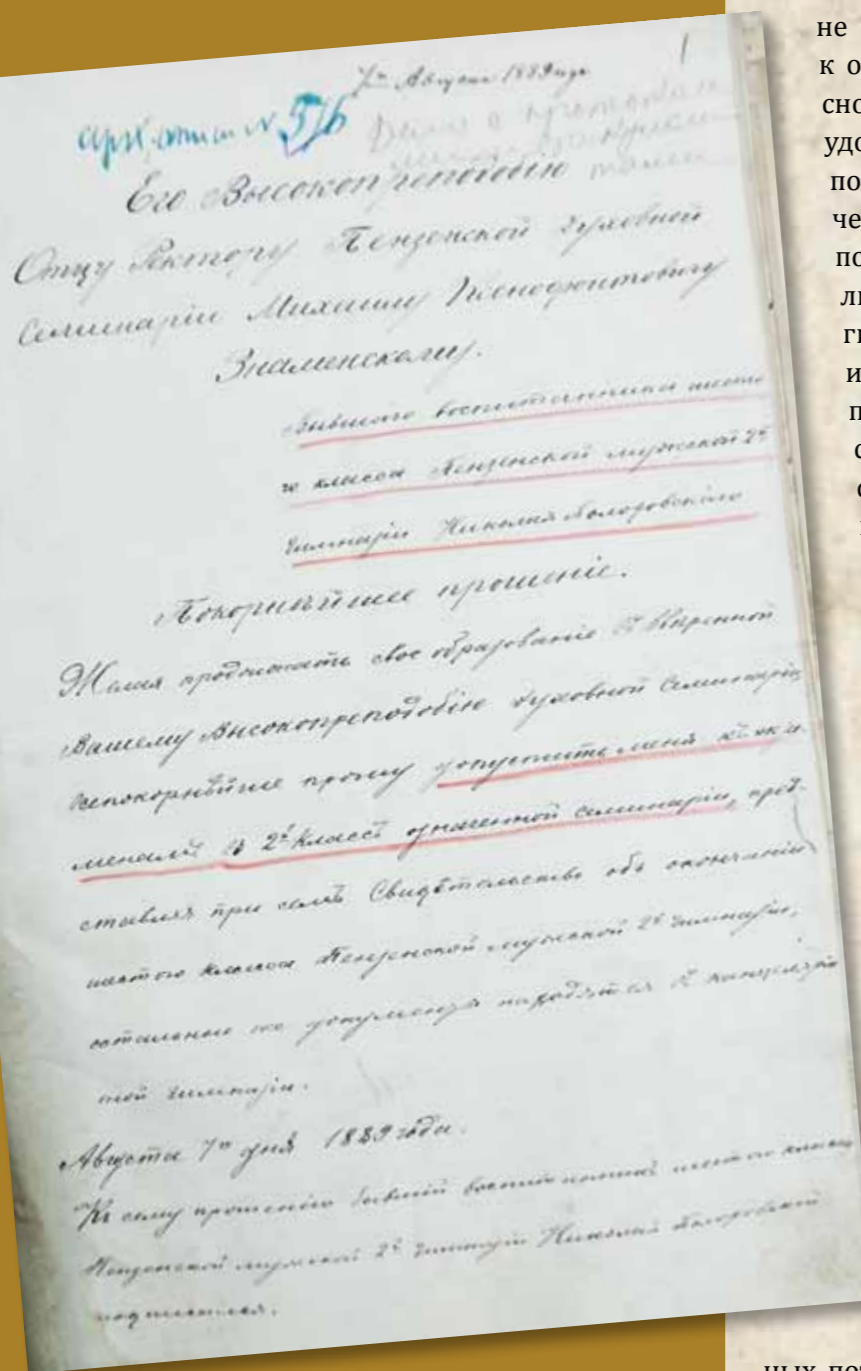 7го Августа 1889 года
1
арх. опись № 516
Дело о
Его Высокопреподобію
Отцу Ректору Пензенской духовной
Семинаріи Михаилу Ксенофонтовичу
Знаменскому.
бывшаго воспитанника шесто
го класса Пензенской мужской 2й
гимназіи Николая
Покорнѣйшее прошеніе.
Желая продолжать свое образованіе въ ввѣренной
Вашему Высокопреподобію духовной Семинаріи
всепокорнѣйше прошу допустить меня къ экза-
менамъ въ 2й классъ означенной семинаріи, пред-
ставляя при семъ Свидѣтельство объ окончаніи
шестого класса Пензенской мужской 2й гимназіи,
остальные же документы находятся въ канцеляріи
той гимназіи.
Августа 7го дня 1889 года.
Къ сему прошенію бывшій воспитанникъ шестого класса
Пензенской мужской 2й гимназіи Николай
подписался.
не
к о
сно
удо
по
че
по
ли
ги
и
п
с
ных пот